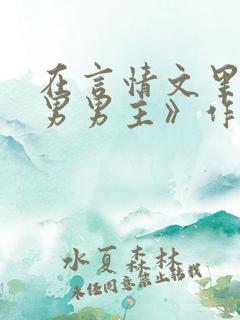 在言情文里
男男主》作
水夏森林
未经同意禁止转载